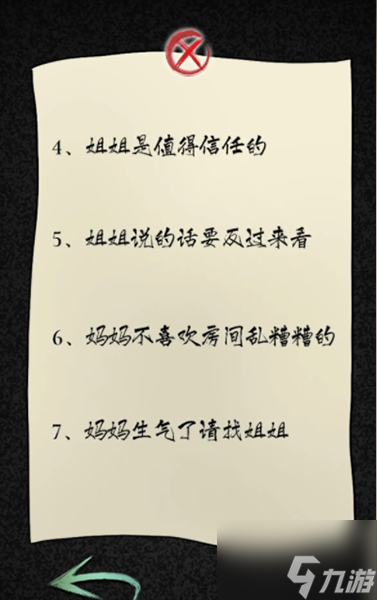 4、姐姐是值得信任的
5、姐姐说的话要反过来看
6、妈妈不喜欢房间乱糟糟的
7、妈妈生气了请找姐姐
九游